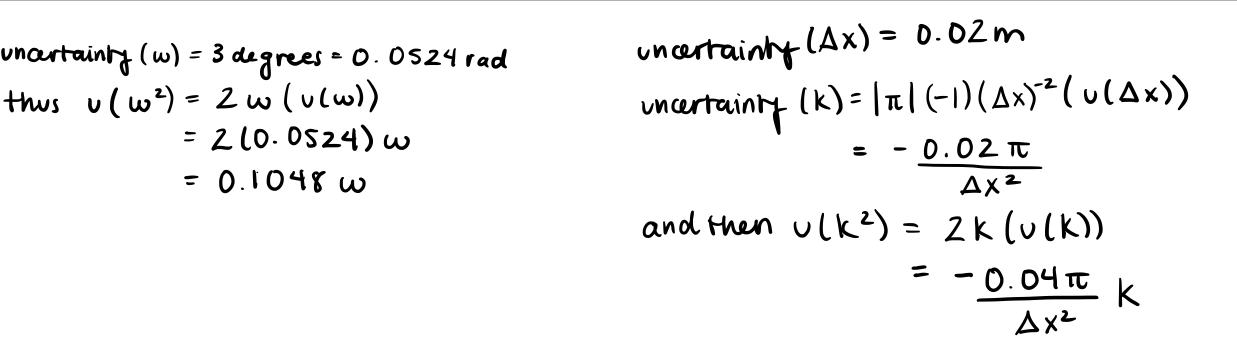 uncertainty (ω) = 3 degrees = 0.0524 rad
thus u(ω²) = 2ω(u(ω))
= 2(0.0524)ω
= 0.1048 ω
uncertainty (Δx) = 0.02m
uncertainty (k) = |π|(-1)(Δx)⁻²(u(Δx))
= - 0.02π / Δx²
and then u(k²) = 2k(u(k))
= - 0.04π / Δx² k